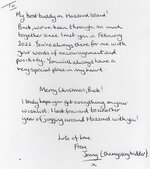 My best buddy on Hazzard Island!
Buck, we've been through so much
together since I met you in February
2022. You're always there for me with
your words of encouragement and
positivity. You will always have a
very special place in my heart.
Merry Christmas, Buck!
I truly hope you get everything on your
wishlist. I look forward to another
year of jogging around Hazzard with you!
Lots of love
From
Jenny (the mystery rabbit)
x